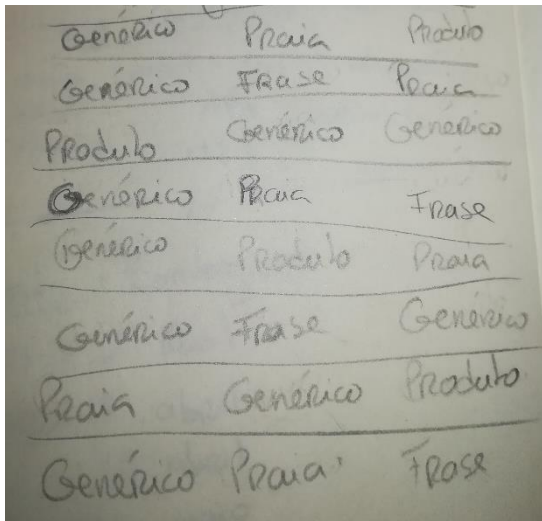 Genérico Praia Produto
Genérico Frase Praia
Produto Genérico Genérico
Genérico Praia Frase
Genérico Produto Praia
Genérico Frase Genérico
Praia Genérico Produto
Genérico Praia Frase